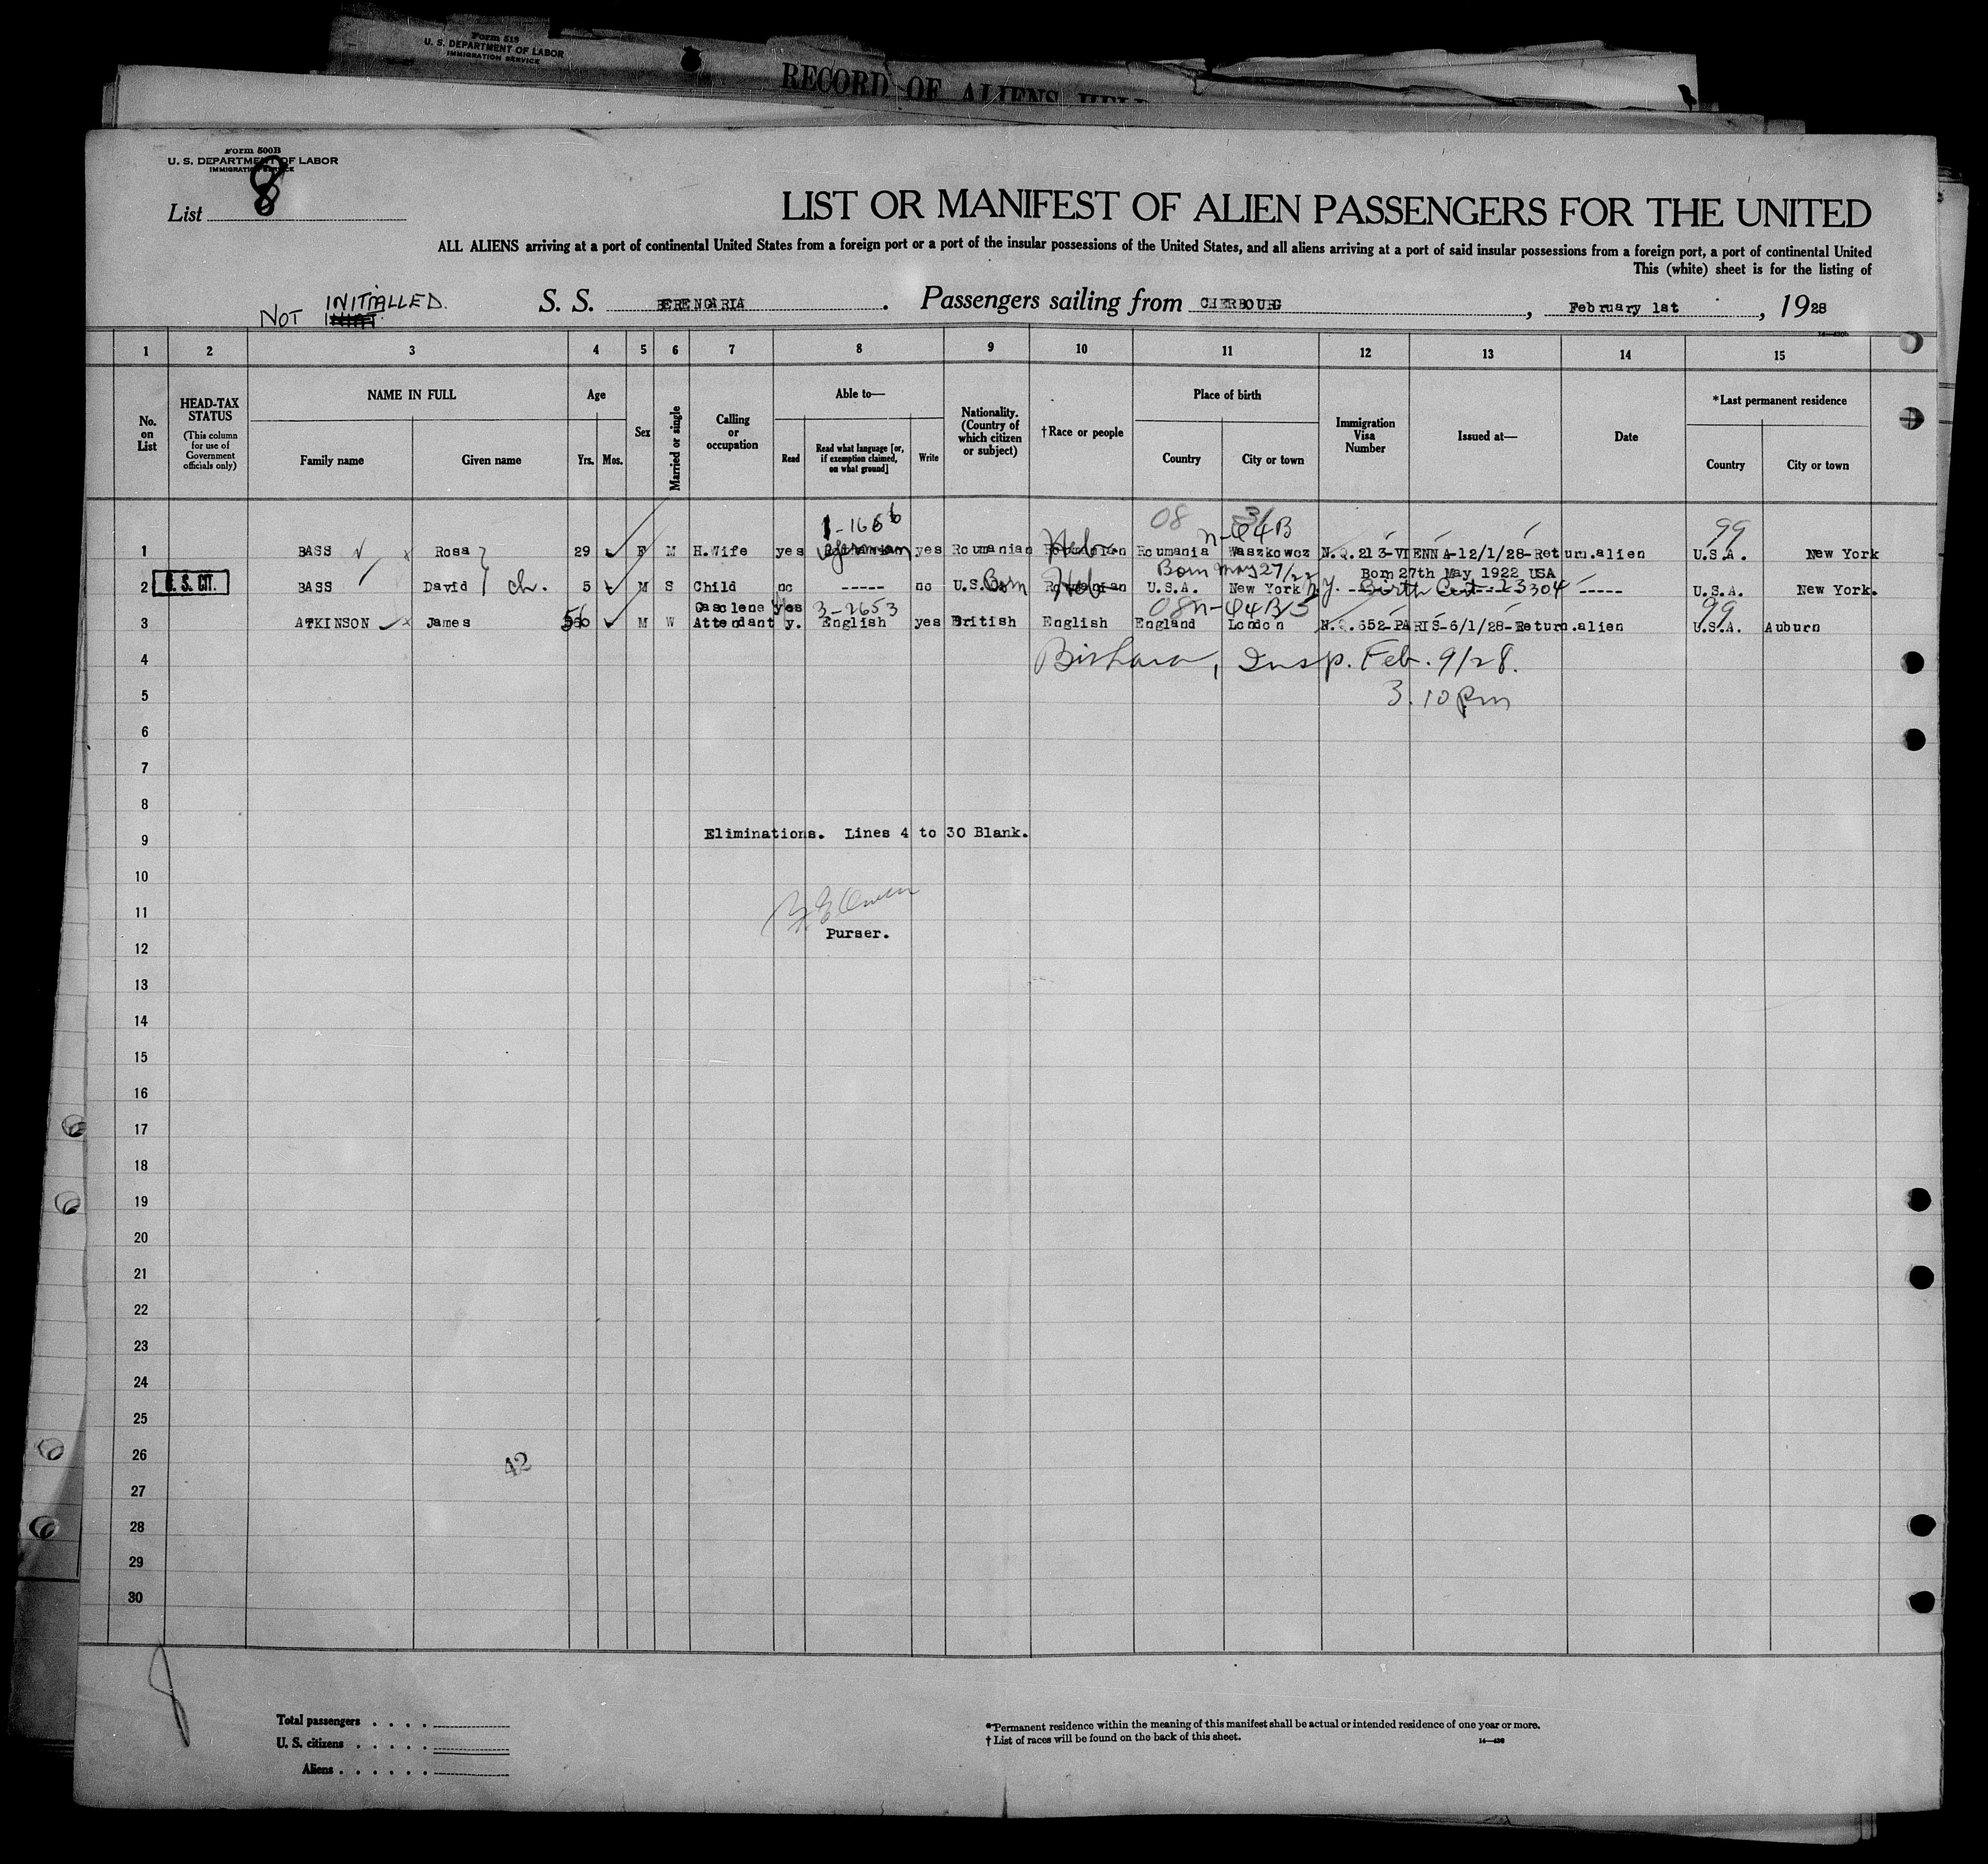 Form 518
U. S. DEPARTMENT OF LABOR
IMMIGRATION SERVICE
RECORD OF ALIENS HELD
Form 500B
U. S. DEPARTMENT OF LABOR
IMMIGRATION SERVICE
List 8
LIST OR MANIFEST OF ALIEN PASSENGERS FOR THE UNITED
ALL ALIENS arriving at a port of continental United States from a foreign port or a port of the insular possessions of the United States, and all aliens arriving at a port of said insular possessions from a foreign port, a port of continental United
This (white) sheet is for the listing of
NOT INITIALLED.
S. S. BERENGARIA. Passengers sailing from CHERBOURG, February 1st, 1928
1 2 3 4 5 6 7 8 9 10 11 12 13 14 15
No. on List
HEAD-TAX STATUS (This column for use of Government officials only)
NAME IN FULL
Family name Given name
Age
Yrs. Mos.
Sex
Married or single
Calling or occupation
Able to—
Read
Read what language [or, if exemption claimed, on what ground]
Write
Nationality. (Country of which citizen or subject)
†Race or people
Place of birth
Country City or town
Immigration Visa Number
Issued at—
Date
*Last permanent residence
Country City or town
1-1656 08 31 n-94B 99
1 BASS Rosa 29 F M H.Wife yes German yes Roumanian Hebr. Roumania Waszkowcz N.Q.213-VIENNA-12/1/28-Return.alien U.S.A. New York
Born May 27/22 Born 27th May 1922 USA
2 U. S. CIT. BASS David ch. 5 M S Child no ----- no U.S. Born Heb U.S.A. New York N.Y. Birth Cert-13304 ----- U.S.A. New York.
Gasolene yes 3-2653 08 n-94B/5 99
3 ATKINSON James 56 M W Attendant y. English yes British English England London N.Q.652-PARIS-6/1/28-Return.alien U.S.A. Auburn
4 Bishara, Insp. Feb. 9/28.
5 3.10 pm
6
7
8
9 Eliminations. Lines 4 to 30 Blank.
10
11
12 Purser.
13
14
15
16
17
18
19
20
21
22
23
24
25
26 42
27
28
29
30
Total passengers . . . .
U. S. citizens . . . . .
Aliens . . . . . .
*Permanent residence within the meaning of this manifest shall be actual or intended residence of one year or more.
† List of races will be found on the back of this sheet.